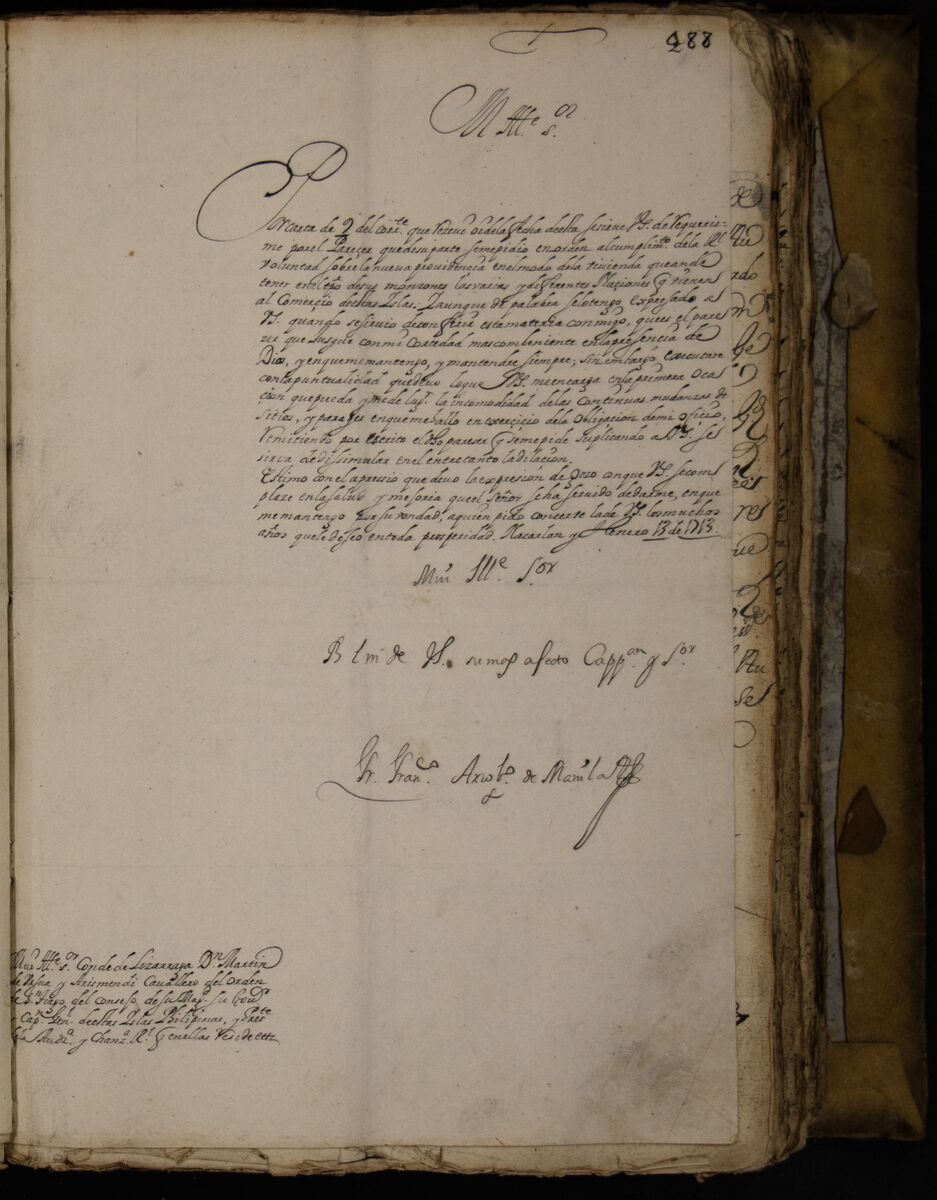 288
M Ille. s.or
Por carta de 9 del corr.te que recevi oi dela fha desta se sirve VS. de requerir=
me por el Parecer que de su parte seme pidio en orden al cumplim.to dela Rl
voluntad sobre la nueva providencia en el modo dela vivienda que ande
tener en el tpo desus monzones las varias y differentes Naciones q vienen
al Comercio destas Islas. Y aunque de palabra selotengo expresado a
VS. quando se sirvio de conferir esta materia conmigo, que es el pare
zer que Jusgue con mi Cortedad mas combeniente en la presencia de
Dios, y en que me mantengo, y mantendre siempre; sin embargo executare
con la puntualidad que devo lo que VS. me encarga en la primera oca
cion que pueda y me de lug.r la incomodidad de las continuas mudanzas de
sitios, y parajes en que me hallo en exercicio dela Obligacion de mi oficio,
remitiendo por escrito el dho parecer q seme pide suplicando a VS. se
sirva de dissimular en el entretanto la dilacion.
Estimo con el apresio que devo la expresion de gozo con que VS. se com
plaze en la salud y mejoria que el Señor se ha servido de darme, en que
me mantengo por su vondad, a quien pido conserve la de VS. los muchos
años que le deseo en toda prosperidad. Nacarlan y Henero 13 de 1713.
Mui Ille S.or
B l m de VS. su mas afecto Capp.an y S.or
Fr. Fran.co Arzob.po de Manila
Mui Ille s.or Conde de Lizarraga D.n Martin
de Vrsua y Arismendi Cavallero del Orden
de S.n tiago del consejo de su Mag.d su Gov.r
Cap.n Gen.l destas Islas Philipinas, y Pres.te
la Aud.a y Chanz.a R.l q en ellas reside etta